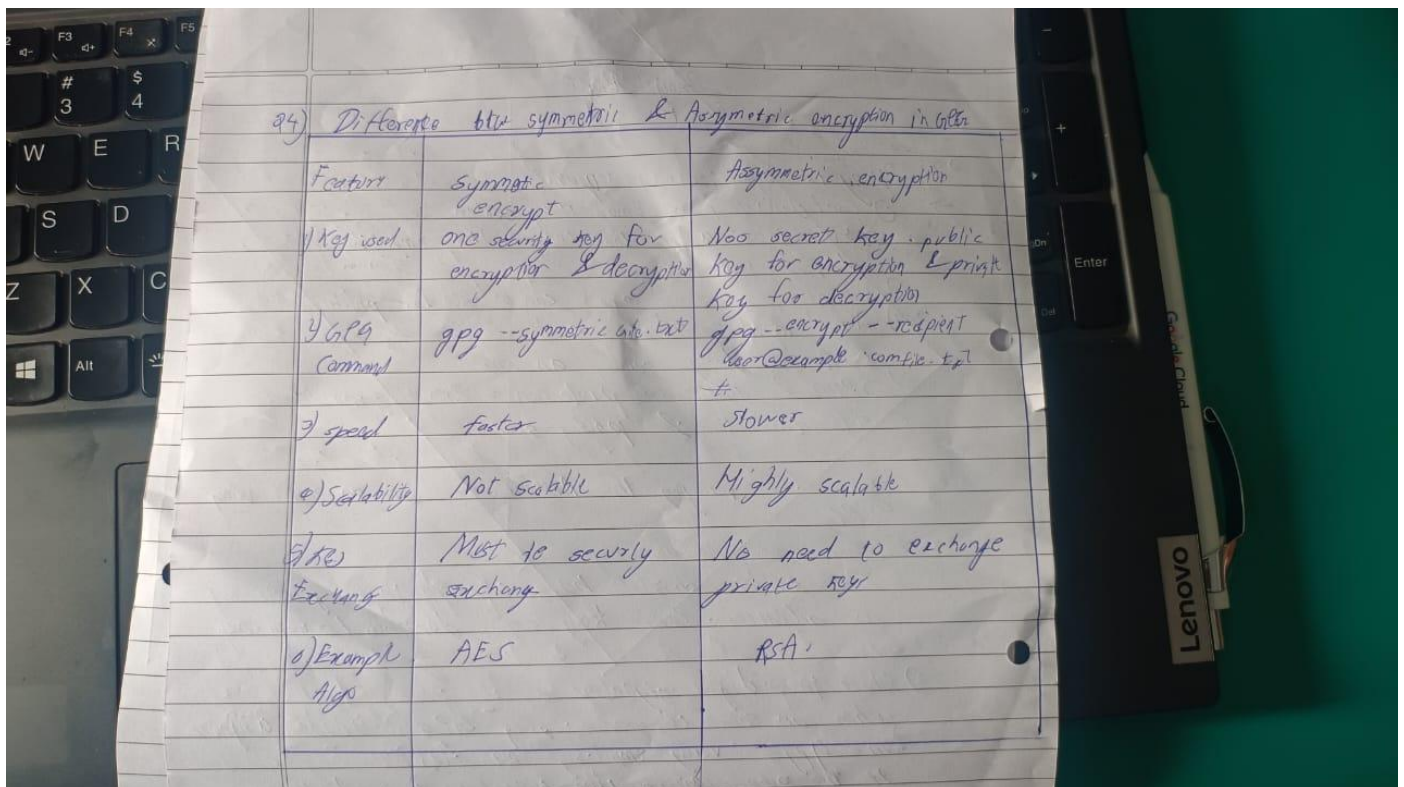 24) Difference btw symmetric & Assymetric encryption in GPG
Feature
Symmetic
encrypt
Assymmetric encryption
1) Key used
one security key for
encryption & decryption
Noo secret key. public
key for encryption & privat
key foo decryption
2) GPG
Command
gpg --symmetric
gpg --encrypt --recipient
user@example
3) speed
faster
Slower
4) Scalability
Not scalable
Highly scalable
5) Key
Exchang
Must be securly
exchang
No need to exchange
private key
6) Exampl
Algo
AES
RSA.
F3
F4
F5
#
3
$
4
W
E
R
S
D
Z
X
C
Alt
+
Enter
Google Cloud
Lenovo